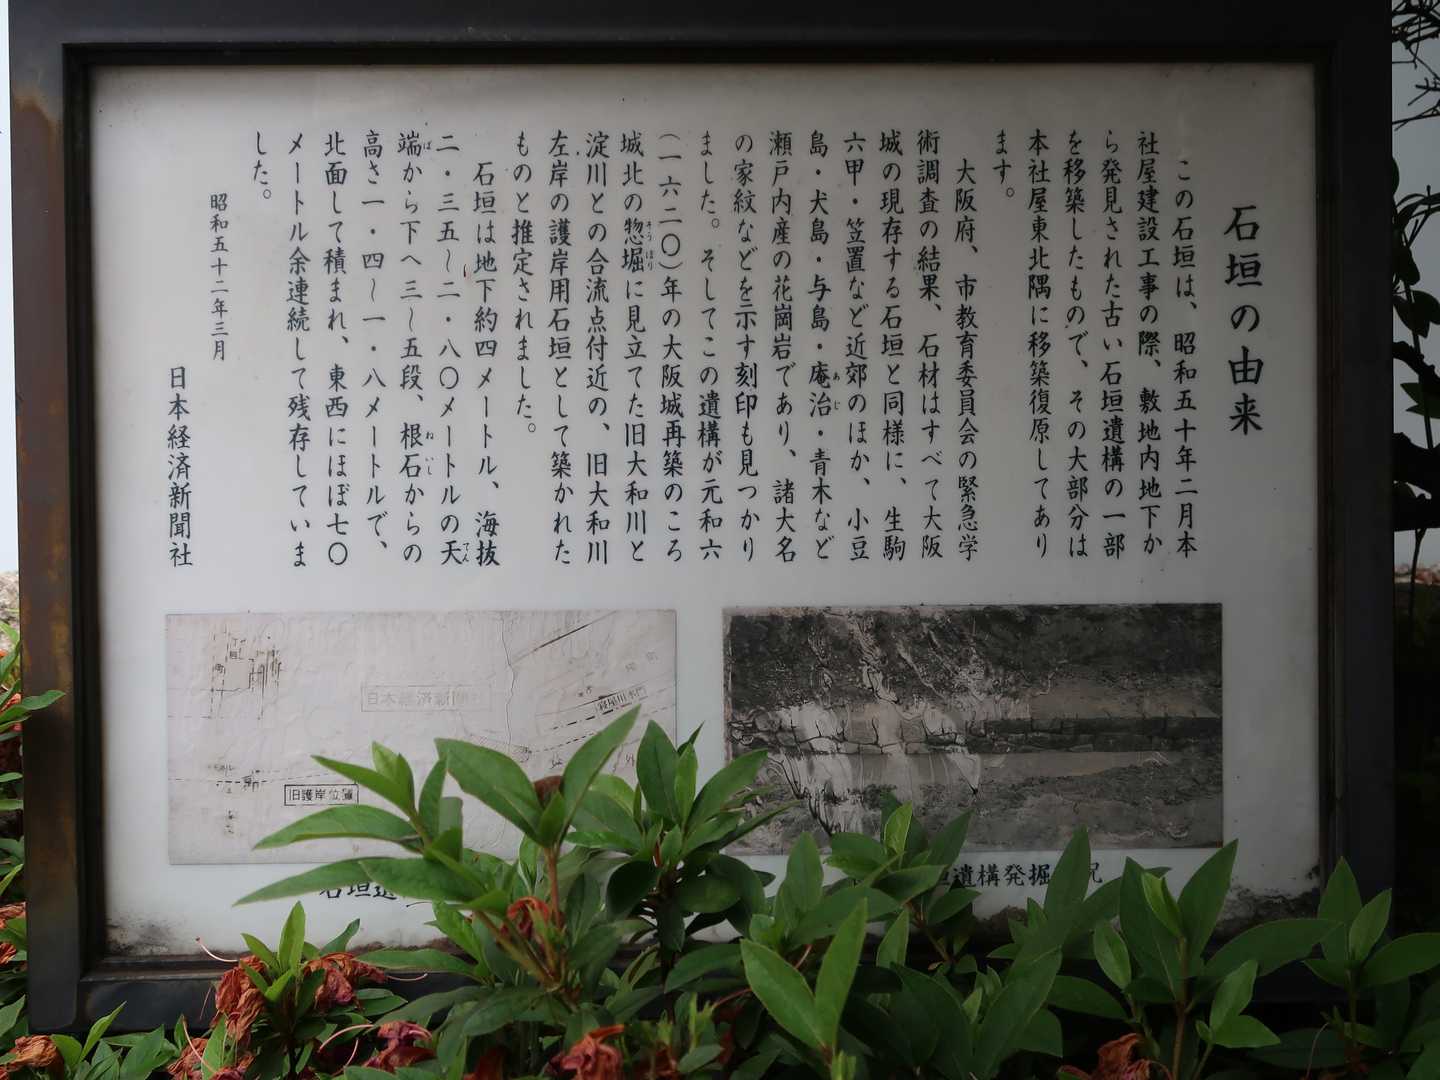 石垣の由来
この石垣は、昭和五十年二月本
社屋建設工事の際、敷地内地下か
ら発見された古い石垣遺構の一部
を移築したもので、その大部分は
本社屋東北隅に移築復原してあり
ます。
大阪府、市教育委員会の緊急学
術調査の結果、石材はすべて大阪
城の現存する石垣と同様に、生駒
六甲・笠置など近郊のほか、小豆
島・犬島・与島・庵治・青木など
瀬戸内産の花崗岩であり、諸大名
の家紋などを示す刻印も見つかり
ました。そしてこの遺構が元和六
(一六二〇)年の大阪城再築のころ
城北の惣堀に見立てた旧大和川と
淀川との合流点付近の、旧大和川
左岸の護岸用石垣として築かれた
ものと推定されました。
石垣は地下約四メートル、海抜
二・三五〜二・八〇メートルの天
端から下へ三〜五段、根石からの
高さ一・四〜一・八メートルで、
北面して積まれ、東西にほぼ七〇
メートル余連続して残存していま
した。
昭和五十二年三月
日本経済新聞社
日本経済新聞社
寝屋川水門
旧護岸位置
石垣遺
遺構発掘